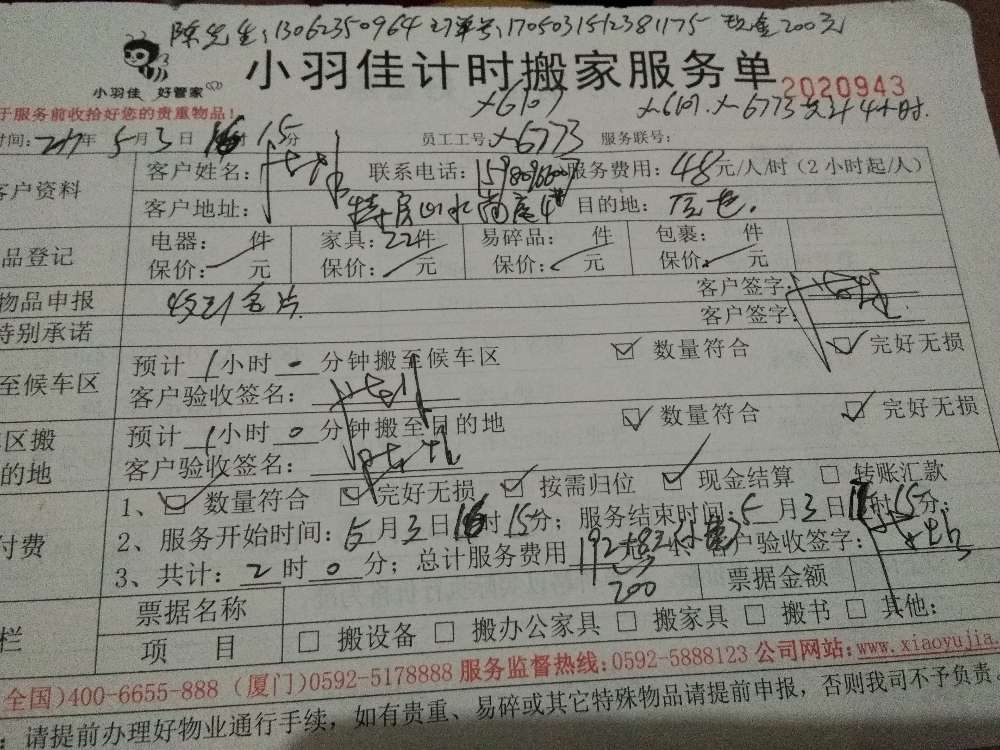 陈先生:13062350964 订单号:1705031512381175 现金200元
小羽佳 好管家
小羽佳计时搬家服务单
2020943
于服务前收拾好您的贵重物品!
X6107
X6107.X6773共计4小时.
时间:2017年5月3日16时15分 员工工号:X6773 服务联号:
客户资料
客户姓名: 联系电话: 服务费用:48元/人/时(2小时起/人)
客户地址:特房山水尚座4# 目的地:
品登记
电器: 件 家具:22件 易碎品: 件 包裹: 件
保价: 元 保价: 元 保价: 元 保价: 元
物品申报 客户签字:
特别承诺 客户签字:
至候车区
预计1小时0分钟搬至候车区 ☑ 数量符合 ☑ 完好无损
客户验收签名:
区搬
的地
预计1小时0分钟搬至目的地 ☑ 数量符合 ☑ 完好无损
客户验收签名:
付费
1、☑ 数量符合 ☑ 完好无损 ☑ 按需归位 ☑ 现金结算 □ 转账汇款
2、服务开始时间:5月3日16时15分;服务结束时间:5月3日18时15分;
3、共计:2时0分;总计服务费用192+8 客户验收签字:
200
栏
票据名称 票据金额
项 目 □ 搬设备 □ 搬办公家具 □ 搬家具 □ 搬书 □ 其他:
全国)400-6655-888 (厦门)0592-5178888 服务监督热线:0592-5888123 公司网站:www.xiaoyujia.
:请提前办理好物业通行手续,如有贵重、易碎或其它特殊物品请提前申报,否则我司不予负责。